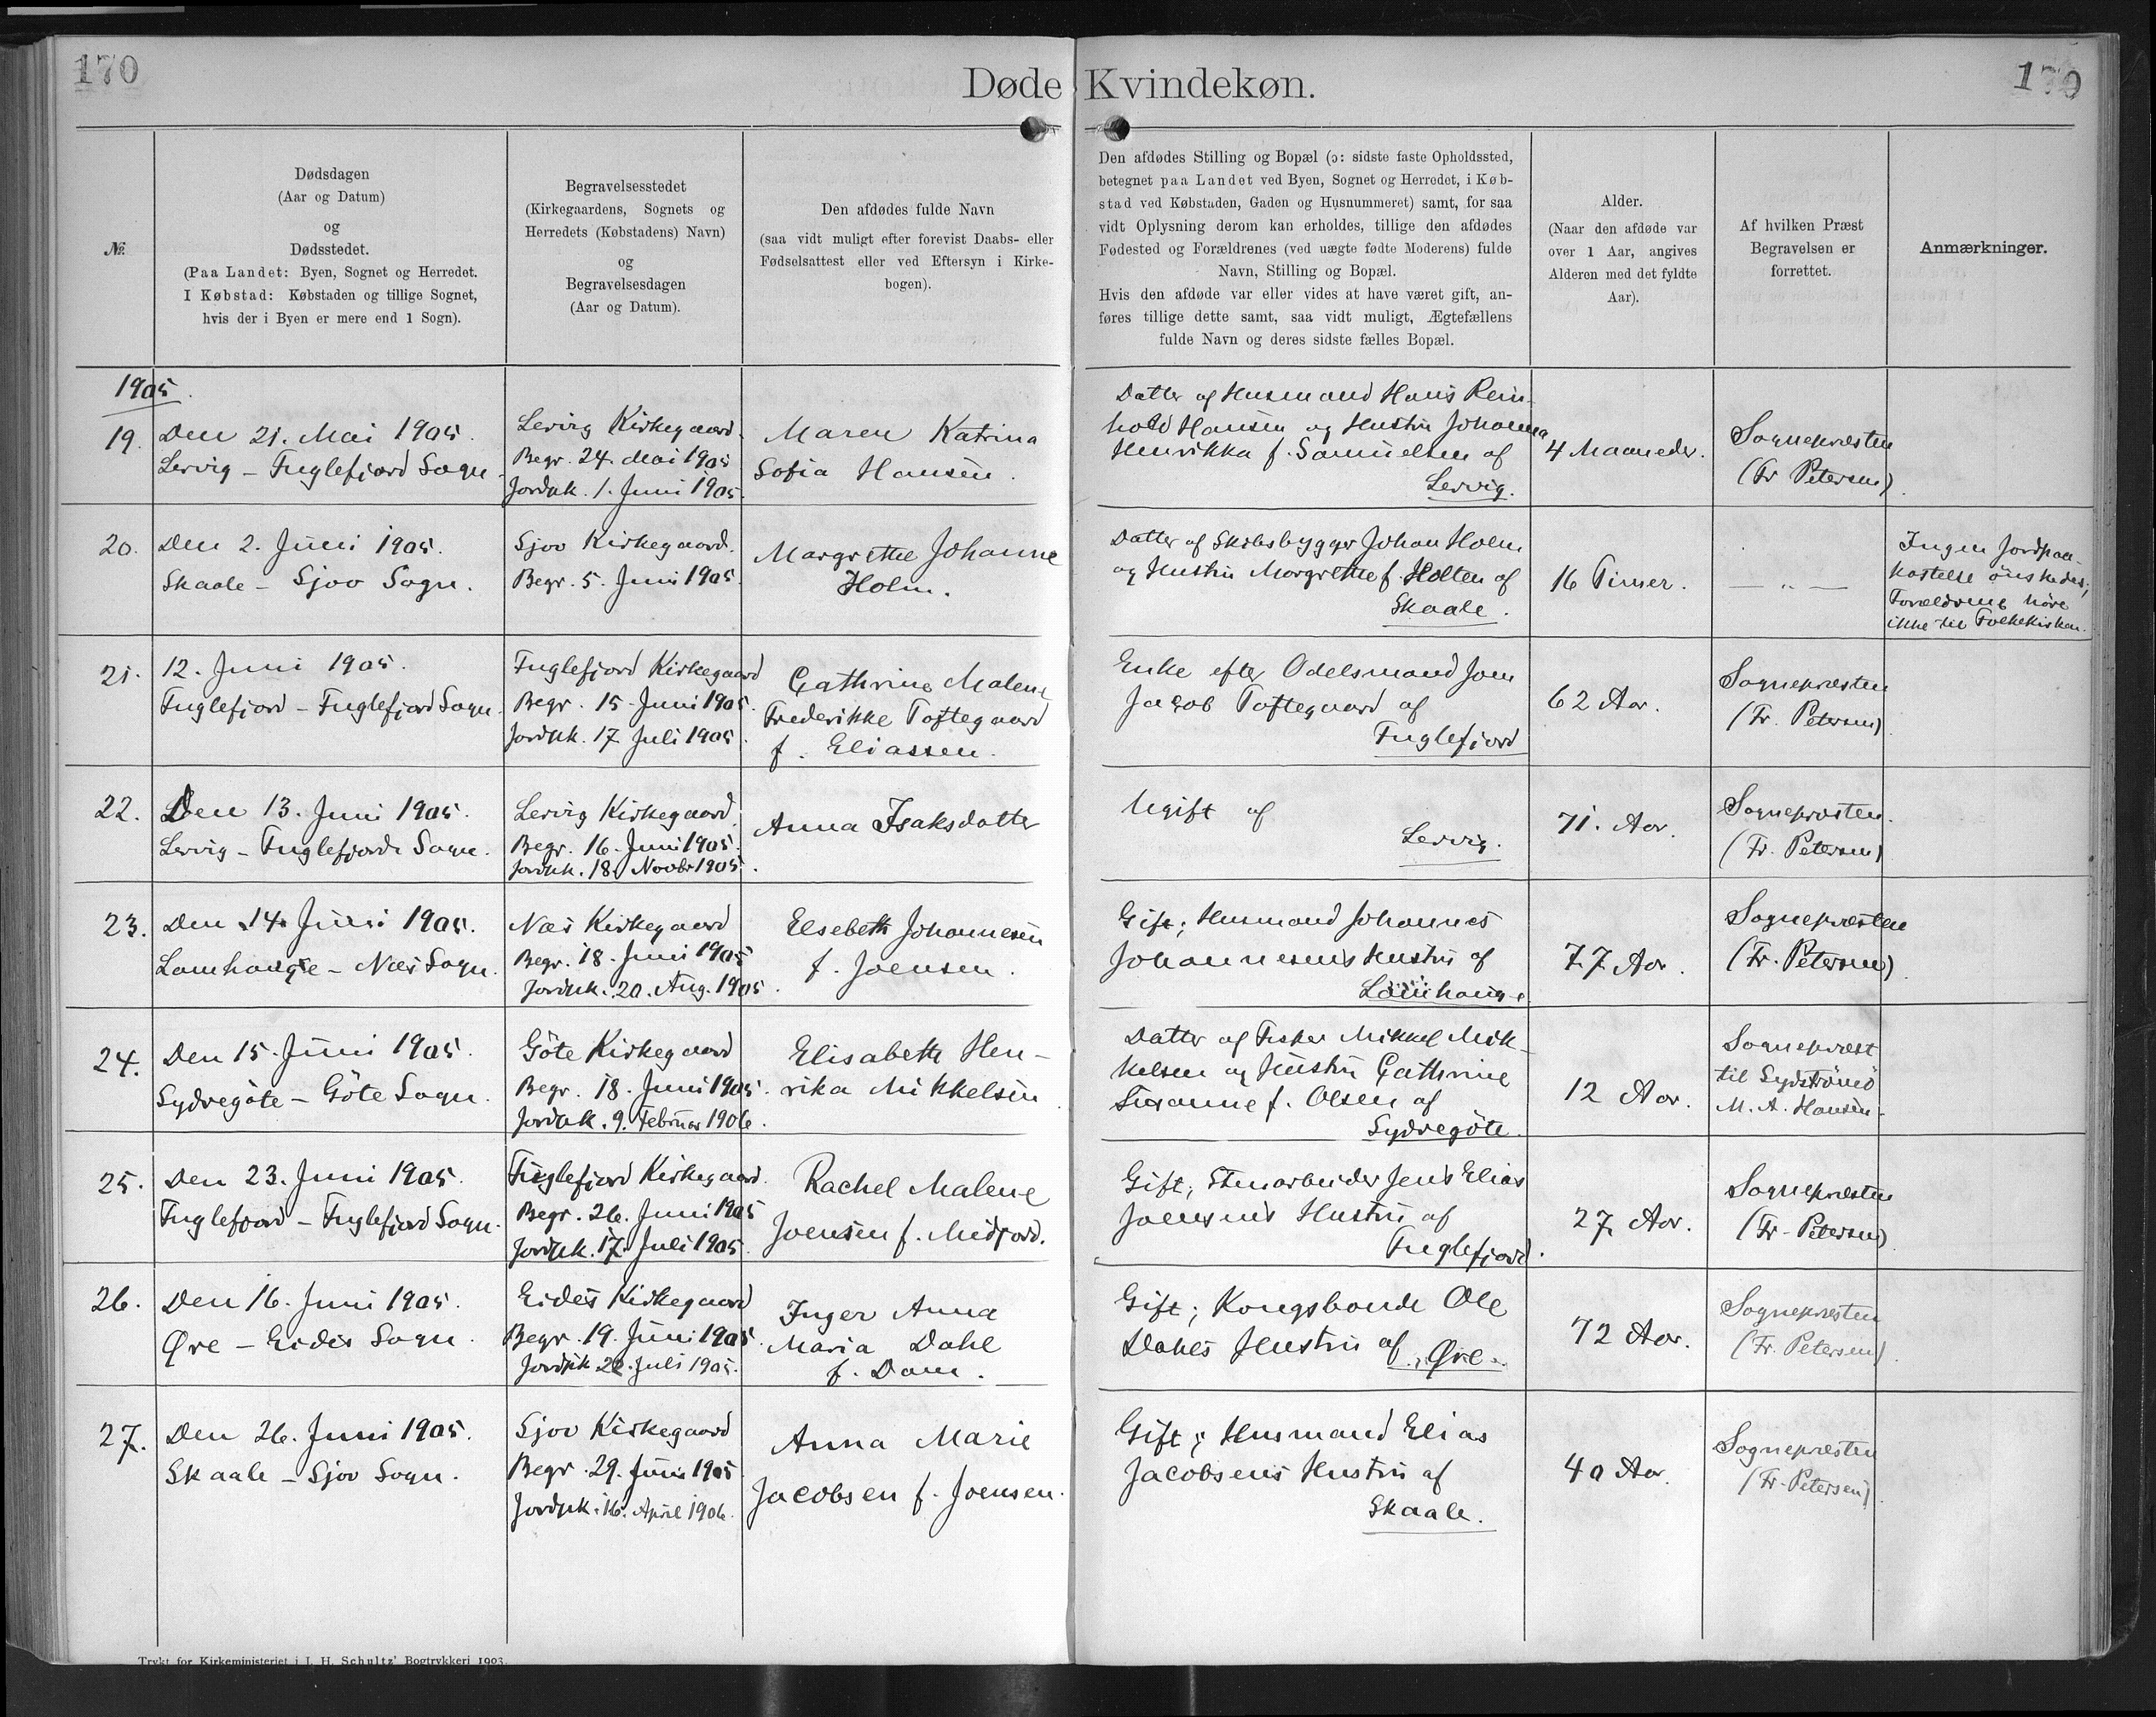 170
Døde Kvindekøn.
170
№
Dødsdagen
(Aar og Datum)
og
Dødsstedet.
(Paa Landet: Byen, Sognet og Herredet.
I Købstad: Købstaden og tillige Sognet,
hvis der i Byen er mere end 1 Sogn).
Begravelsesstedet
(Kirkegaardens, Sognets og
Herredets (Købstadens) Navn)
og
Begravelsesdagen
(Aar og Datum).
Den afdødes fulde Navn
(saa vidt muligt efter forevist Daabs- eller
Fødselsattest eller ved Eftersyn i Kirke-
bogen).
Den afdødes Stilling og Bopæl (ɔ: sidste faste Opholdssted,
betegnet paa Landet ved Byen, Sognet og Herredet, i Køb-
stad ved Købstaden, Gaden og Husnummeret) samt, for saa
vidt Oplysning derom kan erholdes, tillige den afdødes
Fødested og Forældrenes (ved uægte fødte Moderens) fulde
Navn, Stilling og Bopæl.
Hvis den afdøde var eller vides at have været gift, an-
føres tillige dette samt, saa vidt muligt, Ægtefællens
fulde Navn og deres sidste fælles Bopæl.
Alder.
(Naar den afdøde var
over 1 Aar, angives
Alderen med det fyldte
Aar).
Af hvilken Præst
Begravelsen er
forrettet.
Anmærkninger.
1905.
19.
Den 21. Mai 1905.
Lervig – Fuglefjord Sogn.
Lervig Kirkegaard.
Begr. 24. Mai 1905
Jordpk. 1. Juni 1905.
Maren Katrina
Sofia Hansen.
Datter af Husmand Hans Rein-
hold Hansen og Hustru Johanna
Henrikka f. Samuelsen af
Lervig.
4 Maaneder.
Sognepræsten
(Fr Petersen).
20.
Den 2. Juni 1905.
Skaale – Sjov Sogn.
Sjov Kirkegaard.
Begr. 5. Juni 1905.
Margrethe Johanne
Holm.
Datter af Skibsbygger Johan Holm
og Hustru Margrethe f. Holten af
Skaale.
16 Timer.
— " —
Ingen Jordpaa-
kastelse önskedes;
Forældrene höre
ikke til Folkekirken.
21.
12. Juni 1905.
Fuglefjord – Fuglefjord Sogn.
Fuglefjord Kirkegaard
Begr. 15. Juni 1905.
Jordpk. 17. Juli 1905.
Cathrine Malene
Frederikke Toftegaard
f. Eliassen.
Enke efter Odelsmand Joen
Jacob Toftegaard af
Fuglefjord
62 Aar.
Sognepræsten
(Fr. Petersen).
22.
Den 13. Juni 1905.
Lervig – Fuglefjords Sogn.
Lervig Kirkegaard.
Begr. 16. Juni 1905.
Jordpk. 18. Novbr 1905.
Anna Isaksdatter
Ugift af
Lervig.
71. Aar.
Sognepræsten.
(Fr. Petersen)
23.
Den 14. Juni 1905.
Lamhauge – Næs Sogn.
Næs Kirkegaard
Begr. 18. Juni 1905
Jordpk. 20. Aug. 1905.
Elsebeth Johannesen
f. Joensen.
Gift; Husmand Johannes
Johannesens Hustru af
Lamhauge
77 Aar.
Sognepræsten
(Fr. Petersen).
24.
Den 15. Juni 1905.
Sydregöte – Göte Sogn.
Göte Kirkegaard
Begr. 18. Juni 1905.
Jordpk. 9. Februar 1906.
Elisabeth Hen-
rika Mikkelsen
Datter af Fisker Mikkel Mik-
kelsen og Hustru Cathrine
Susanne f. Olsen af
Sydregöte.
12 Aar.
Sognepræst
til Sydströmö
M. A. Hansen.
25.
Den 23. Juni 1905.
Fuglefjord – Fuglefjord Sogn.
Fuglefjord Kirkegaard.
Begr. 26. Juni 1905
Jordpk. 17. Juli 1905.
Rachel Malene
Joensen f. Midjord.
Gift; Stenarbeider Jens Elias
Joensens Hustru af
Fuglefjord.
27 Aar.
Sognepræsten
(Fr. Petersen).
26.
Den 16. Juni 1905.
Øre – Eides Sogn.
Eides Kirkegaard
Begr. 19. Juni 1905.
Jordpk 22. Juli 1905.
Inger Anna
Maria Dahl
f. Dam.
Gift; Kongsbonde Ole
Dahls Hustru af Øre.
72 Aar.
Sognepræsten
(Fr. Petersen).
27.
Den 26. Juni 1905.
Skaale – Sjov Sogn.
Sjov Kirkegaard
Begr. 29. Juni 1905
Jordpk. 16. April 1906.
Anna Marie
Jacobsen f. Joensen.
Gift; Husmand Elias
Jacobsens Hustru af
Skaale.
40 Aar.
Sognepræsten
(Fr. Petersen).
Trykt for Kirkeministeriet i J. H. Schultz' Bogtrykkeri 1903.